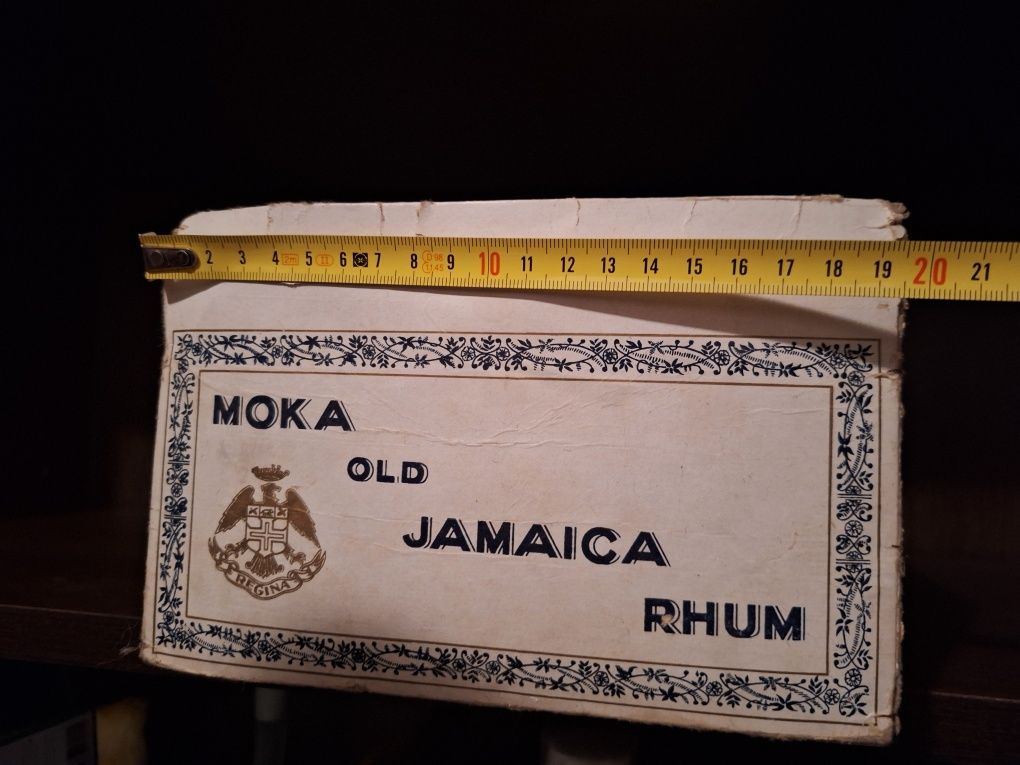 2 3 4 2m II 5 6 7 8 9 10 11 12 13 14 15 16 17 18 19 20 21
MOKA
OLD
JAMAICA
RHUM
REGINA